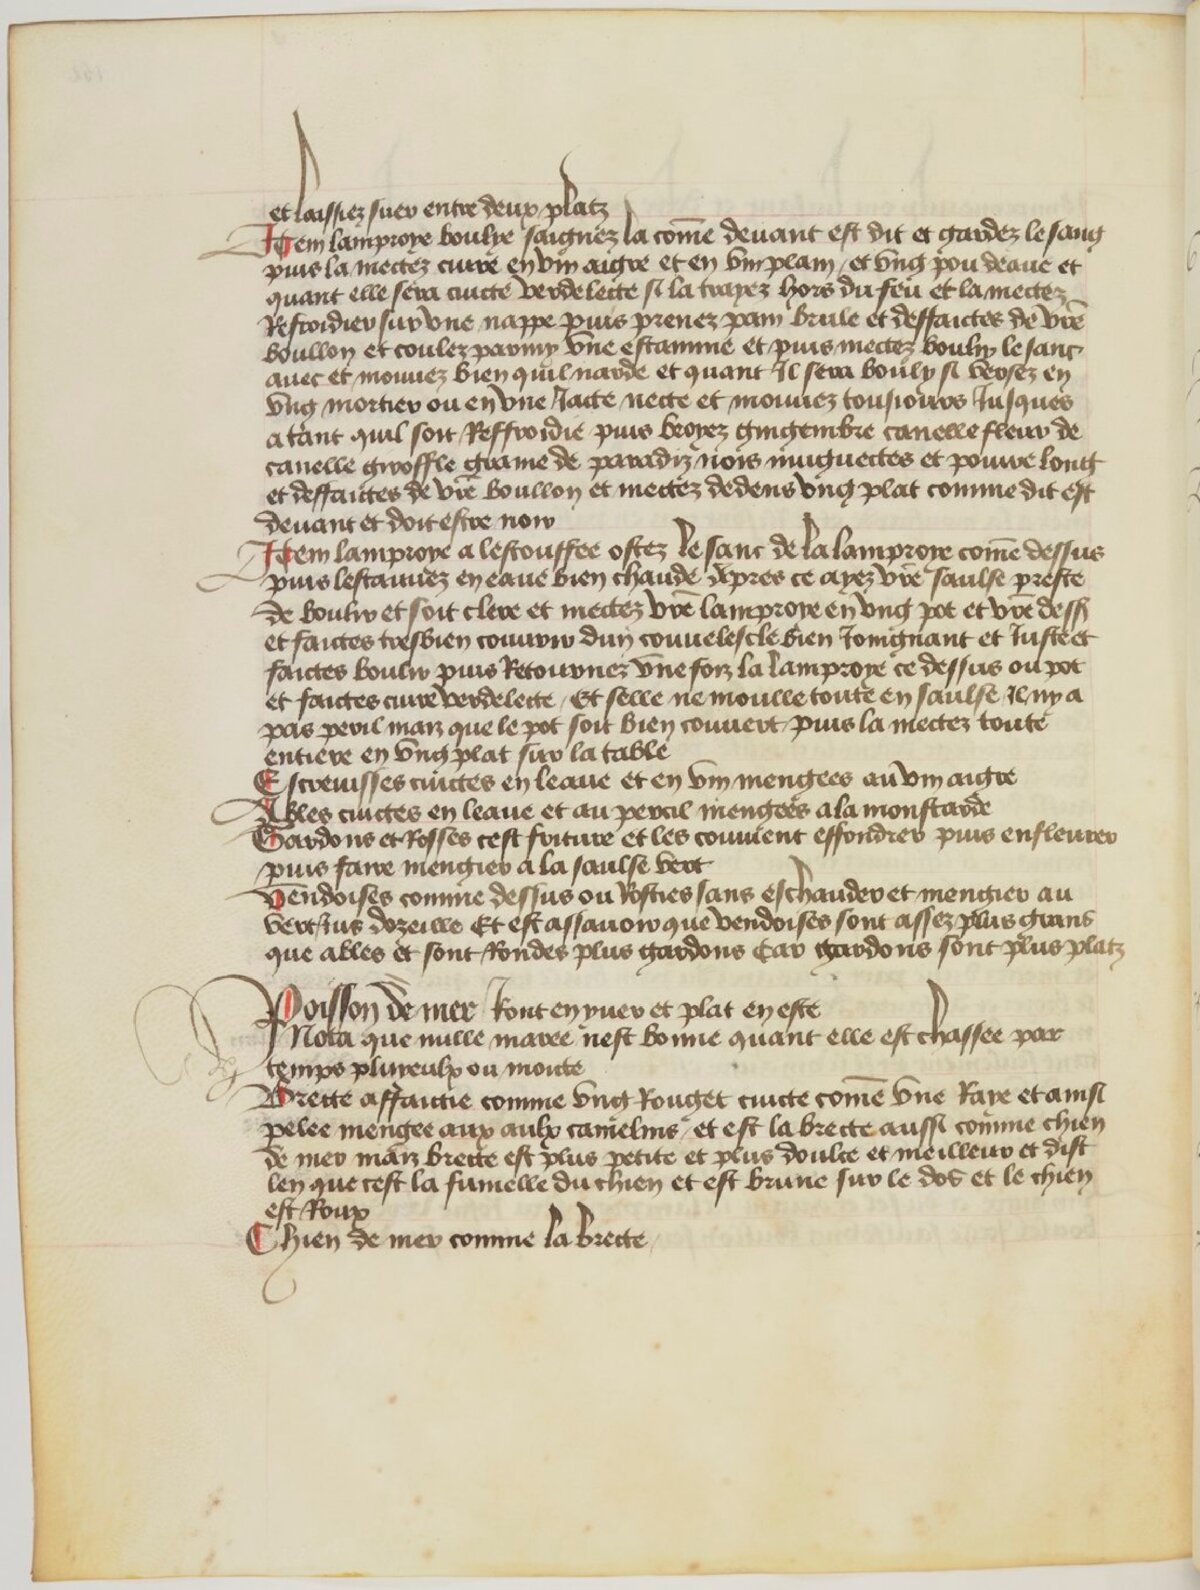 et laissiez suer entre deux platz
Item lamproye boulye saignez la come devant est dit et gardez le sang
puis la mectez cuire en vin aigre et en vin plain et ung pou deaue et
quant elle sera cuicte verdelecte si la trayez hors du feu et la mectez
Reffroidier sur une nappe puis prenez pain brule et deffaictes de vre
boullon et coulez parmy une estamine et puis mectez boulir le sanc
avec et mouvez bien quil narde et quant Il sera bouly si versez en
ung mortier ou en une Jacte necte et mouvez tousiours Jusques
a tant quil soit Reffroidie puis broyez gingembre canelle fleur de
canelle giroffle graine de paradiz nois muguectes et poivre long
et deffaictes de vre boullon et mectez dedens ung plat comme dit est
devant et doit estre noir
Item lamproye a lestouffee ostez le sanc de la lamproye come dessus
puis lestauvez en eaue bien chaude apres ce ayez vre saulse preste
de boulir et soit clere et mectez vre lamproye en ung pot et vre dessus
et faictes tresbien couvrir dun couvelescle bien Joingnant et Juste et
faictes boulir puis Retournez une foiz la lamproye ce dessus ou pot
et faictes cuire verdelecte Et selle ne moulle toute en saulse Il ny a
pas peril maiz que le pot soit bien couvert puis la mectez toute
entiere en ung plat sur la table
Escrevisses cuictes en leaue et en vin mengees au vin aigre
Ables cuictes en leaue et au percil mengees a la moustarde
Gardons et Rosses cest friture et les convient effondrer puis enfleurer
puis faire mengier a la saulse vert
Vendoises comme dessus ou Rosties sans eschauder et mengier au
vert Jus dozeille Et est assavoir que vendoises sont assez plus grans
que ables et sont Rondes plus gardons Car gardons sont plus platz
Poisson de mer Ront en yver et plat en este
Nota que nulle maree nest bonne quant elle est chassee par
temps pluyeulx ou moicte
Brecte affaictie comme ung Rouget cuicte come une Raye et ainsi
pelee mengee aux aulx camelins et est la brecte aussi comme chien
de mer maiz brecte est plus petite et plus doulce et meilleur et dist
len que cest la fumelle du chien et est brune sur le dos et le chien
est Roux
Chien de mer comme la brecte